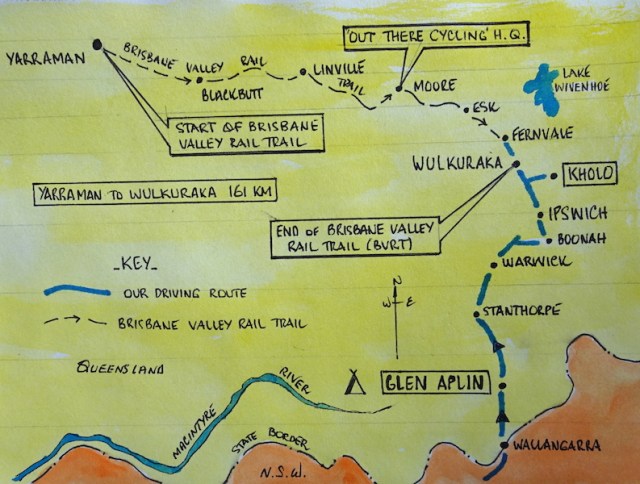 'OUT THERE CYCLING' H.Q.
YARRAMAN
BRISBANE VALLEY RAIL TRAIL
LINVILLE
BLACKBUTT
MOORE
LAKE
WIVENHOE
ESK
START OF BRISBANE
VALLEY RAIL TRAIL
FERNVALE
WULKURAKA
KHOLO
YARRAMAN TO WULKURAKA 161 KM
IPSWICH
END OF BRISBANE VALLEY
RAIL TRAIL (BVRT)
BOONAH
_KEY_
WARWICK
OUR DRIVING ROUTE
N
W E
STANTHORPE
BRISBANE VALLEY RAIL TRAIL
QUEENSLAND
GLEN APLIN
MACINTYRE RIVER
STATE BORDER
WALLANGARRA
N.S.W.